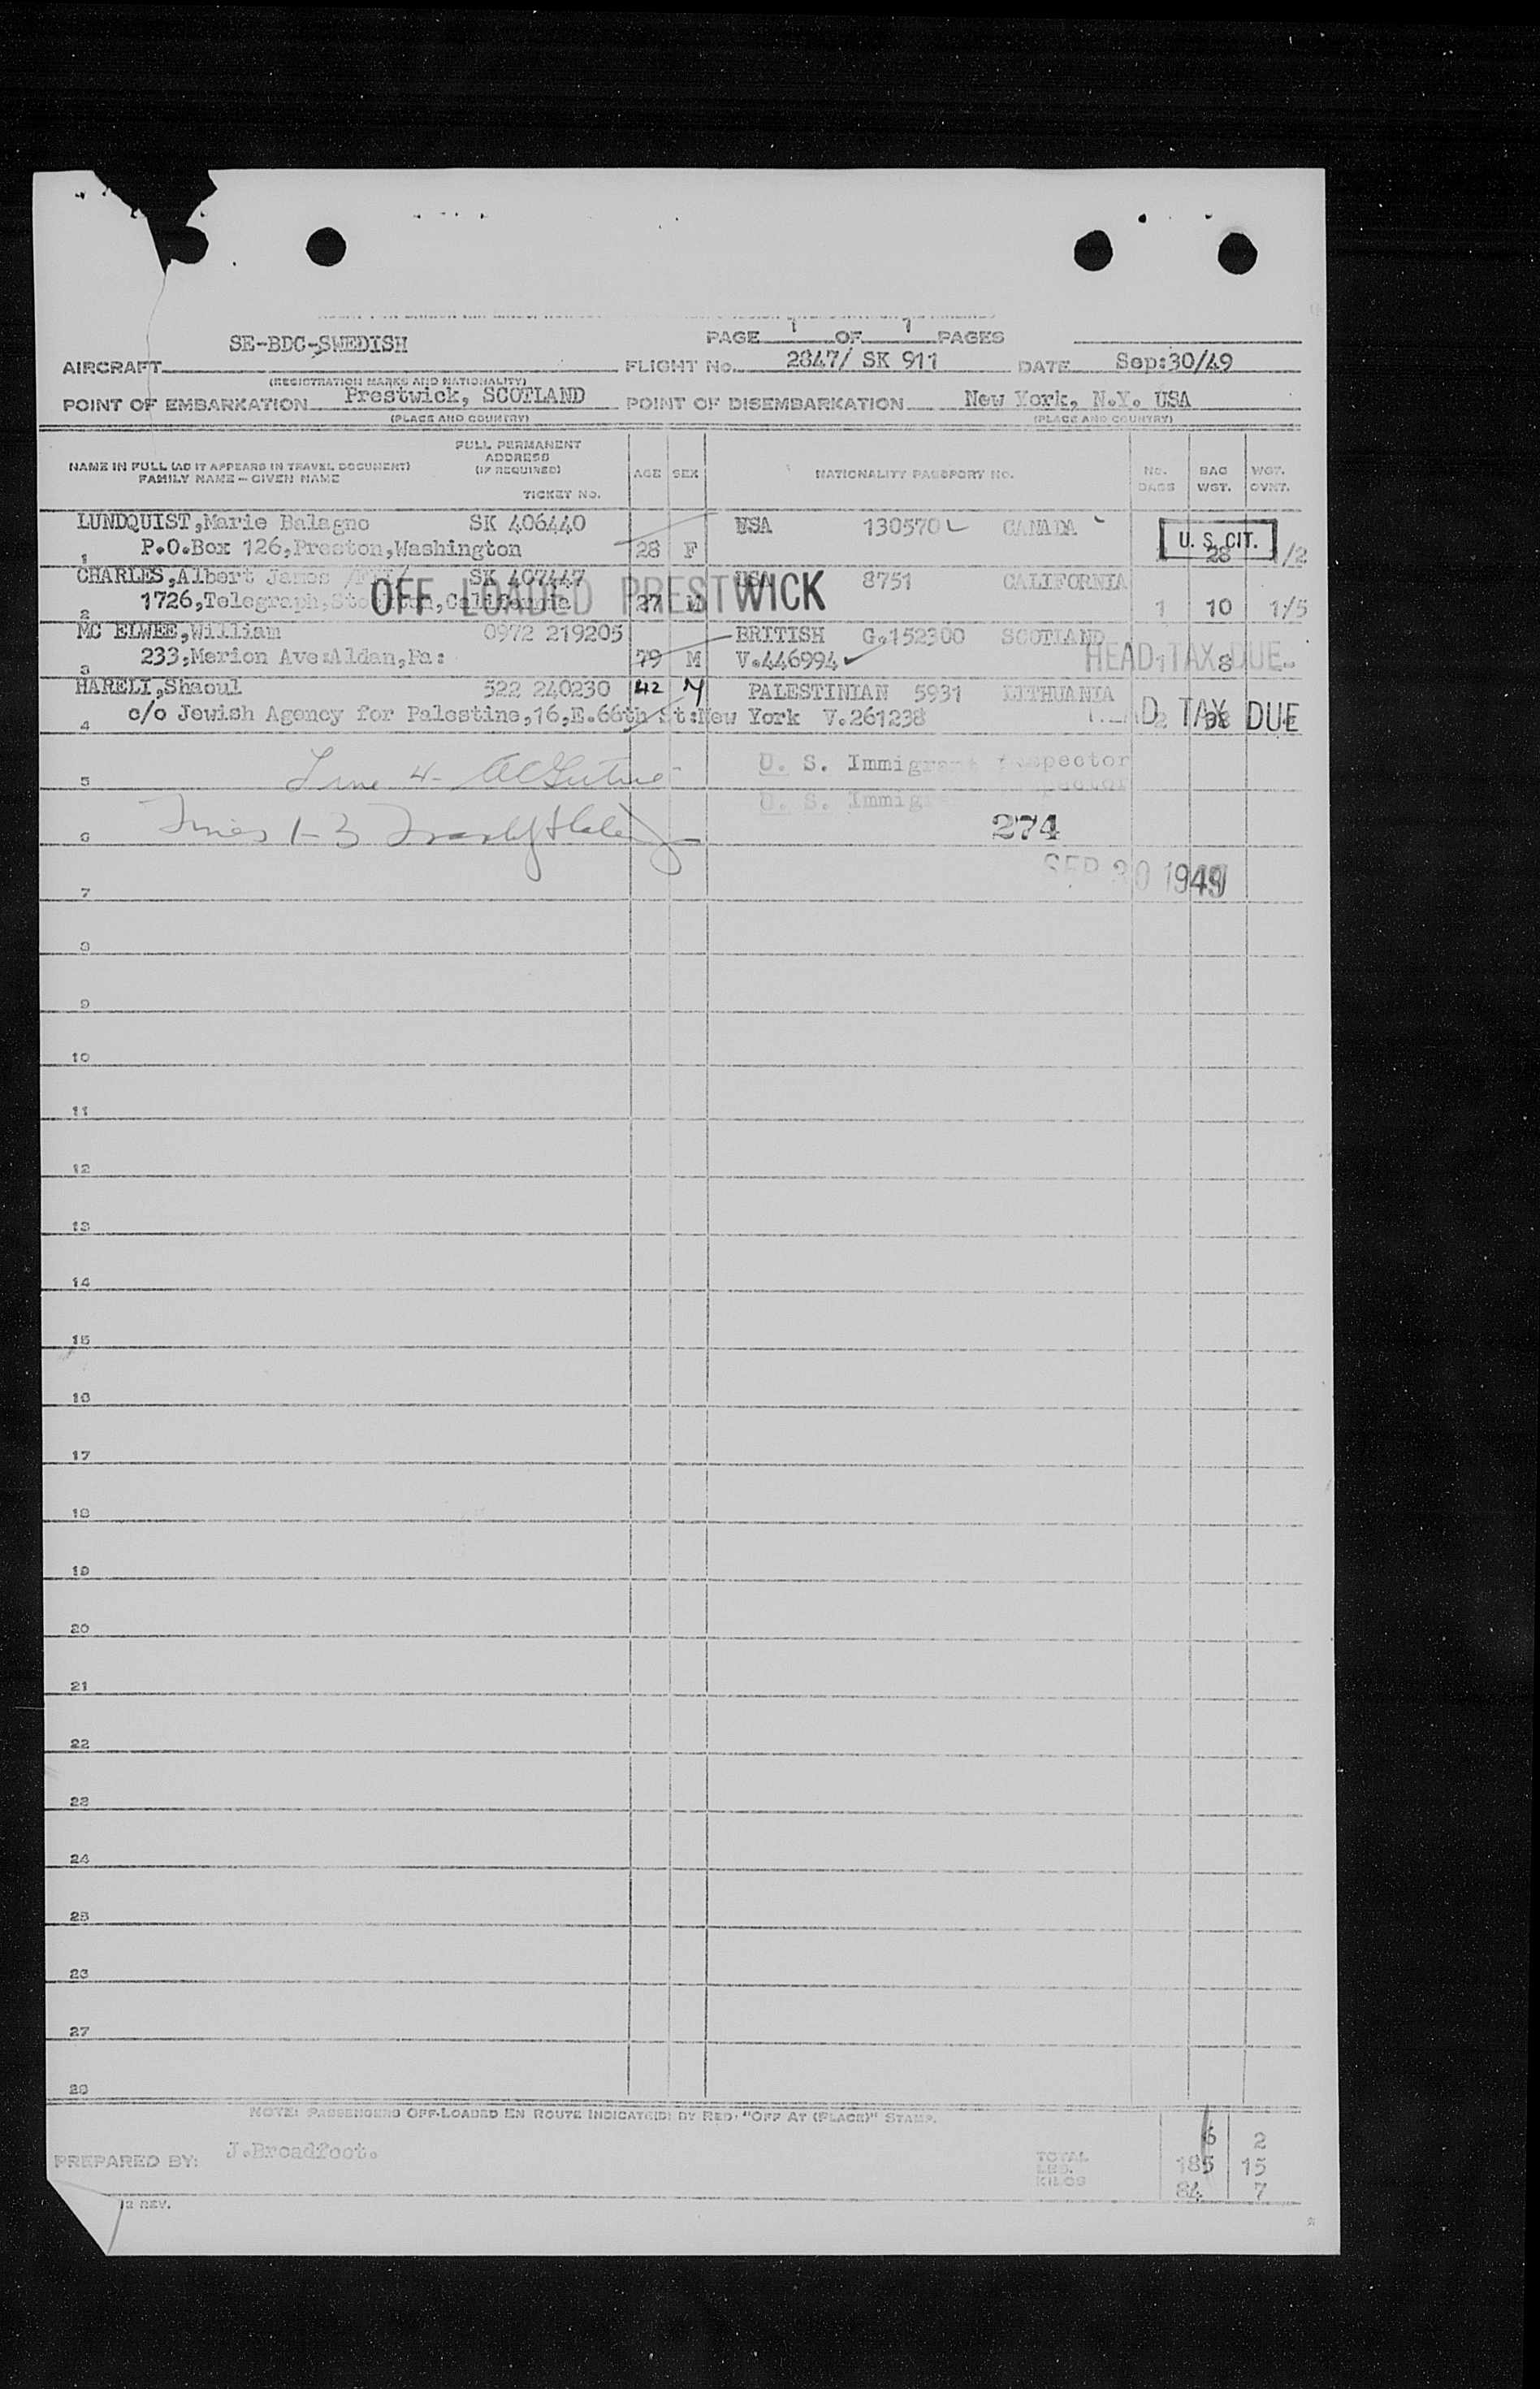 PAGE 1 OF 1 PAGES
AIRCRAFT SE-BDC-SWEDISH FLIGHT No. 2847/ SK 911 DATE Sep:30/49
(REGISTRATION MARKS AND NATIONALITY)
POINT OF EMBARKATION Prestwick, SCOTLAND POINT OF DISEMBARKATION New York, N.Y. USA
(PLACE AND COUNTRY) (PLACE AND COUNTRY)
NAME IN FULL (AS IT APPEARS IN TRAVEL DOCUMENT) FAMILY NAME – GIVEN NAME FULL PERMANENT ADDRESS (IF REQUIRED) TICKET NO. AGE SEX NATIONALITY PASSPORT NO. NO. BAGS BAG WGT. WGT. OVWT.
LUNDQUIST,Marie Balagno SK 406440 USA 130570 CANADA U. S. CIT.
1 P.O.Box 126,Preston,Washington 28 F 28 1/2
CHARLES,Albert James SK 407447 USA 8751 CALIFORNIA
OFF LOADED PRESTWICK
2 1726,Telegraph,Stockton,California 27 M 1 10 1/5
MC ELWEE,William 0972 219205 BRITISH G.152300 SCOTLAND
3 233,Merion Ave:Aldan,Pa: 79 M V.446994 1 8
HEAD TAX DUE
HARELI,Shaoul 522 240230 42 M PALESTINIAN 5931 LITHUANIA
4 c/o Jewish Agency for Palestine,16,E.66th St:New York V.261238 2 38
HEAD TAX DUE
5 Line 4 - U. S. Immigrant Inspector
U. S. Immig
6 Lines 1-3 274
SEP 30 1949
7
8
9
10
11
12
13
14
15
16
17
18
19
20
21
22
23
24
25
26
27
28
NOTE: PASSENGERS OFF-LOADED EN ROUTE INDICATED BY RED "OFF AT (PLACE)" STAMP.
6 2
PREPARED BY: J.Broadfoot. TOTAL
LBS. 185 15
KILOS 84 7
12 REV.